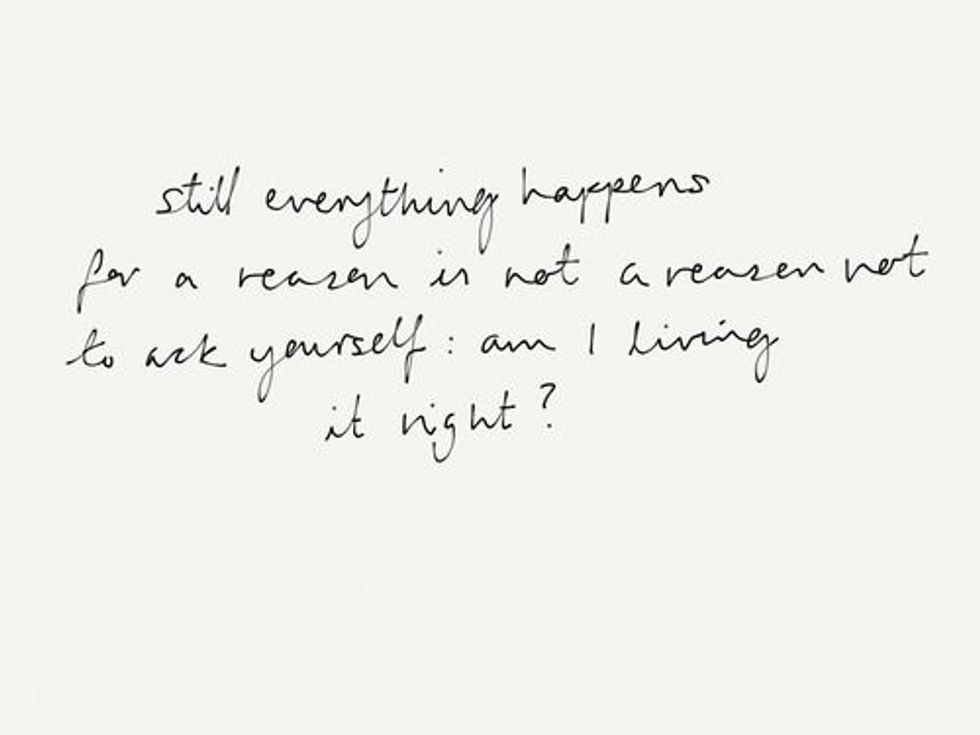 still everything happens
for a reason is not a reason not
to ask yourself: am I living
it right?